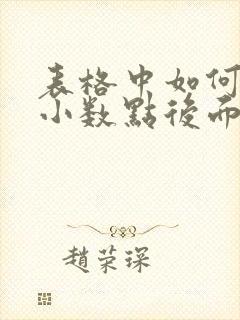 表格中如何
小数點後而
趙荣琛